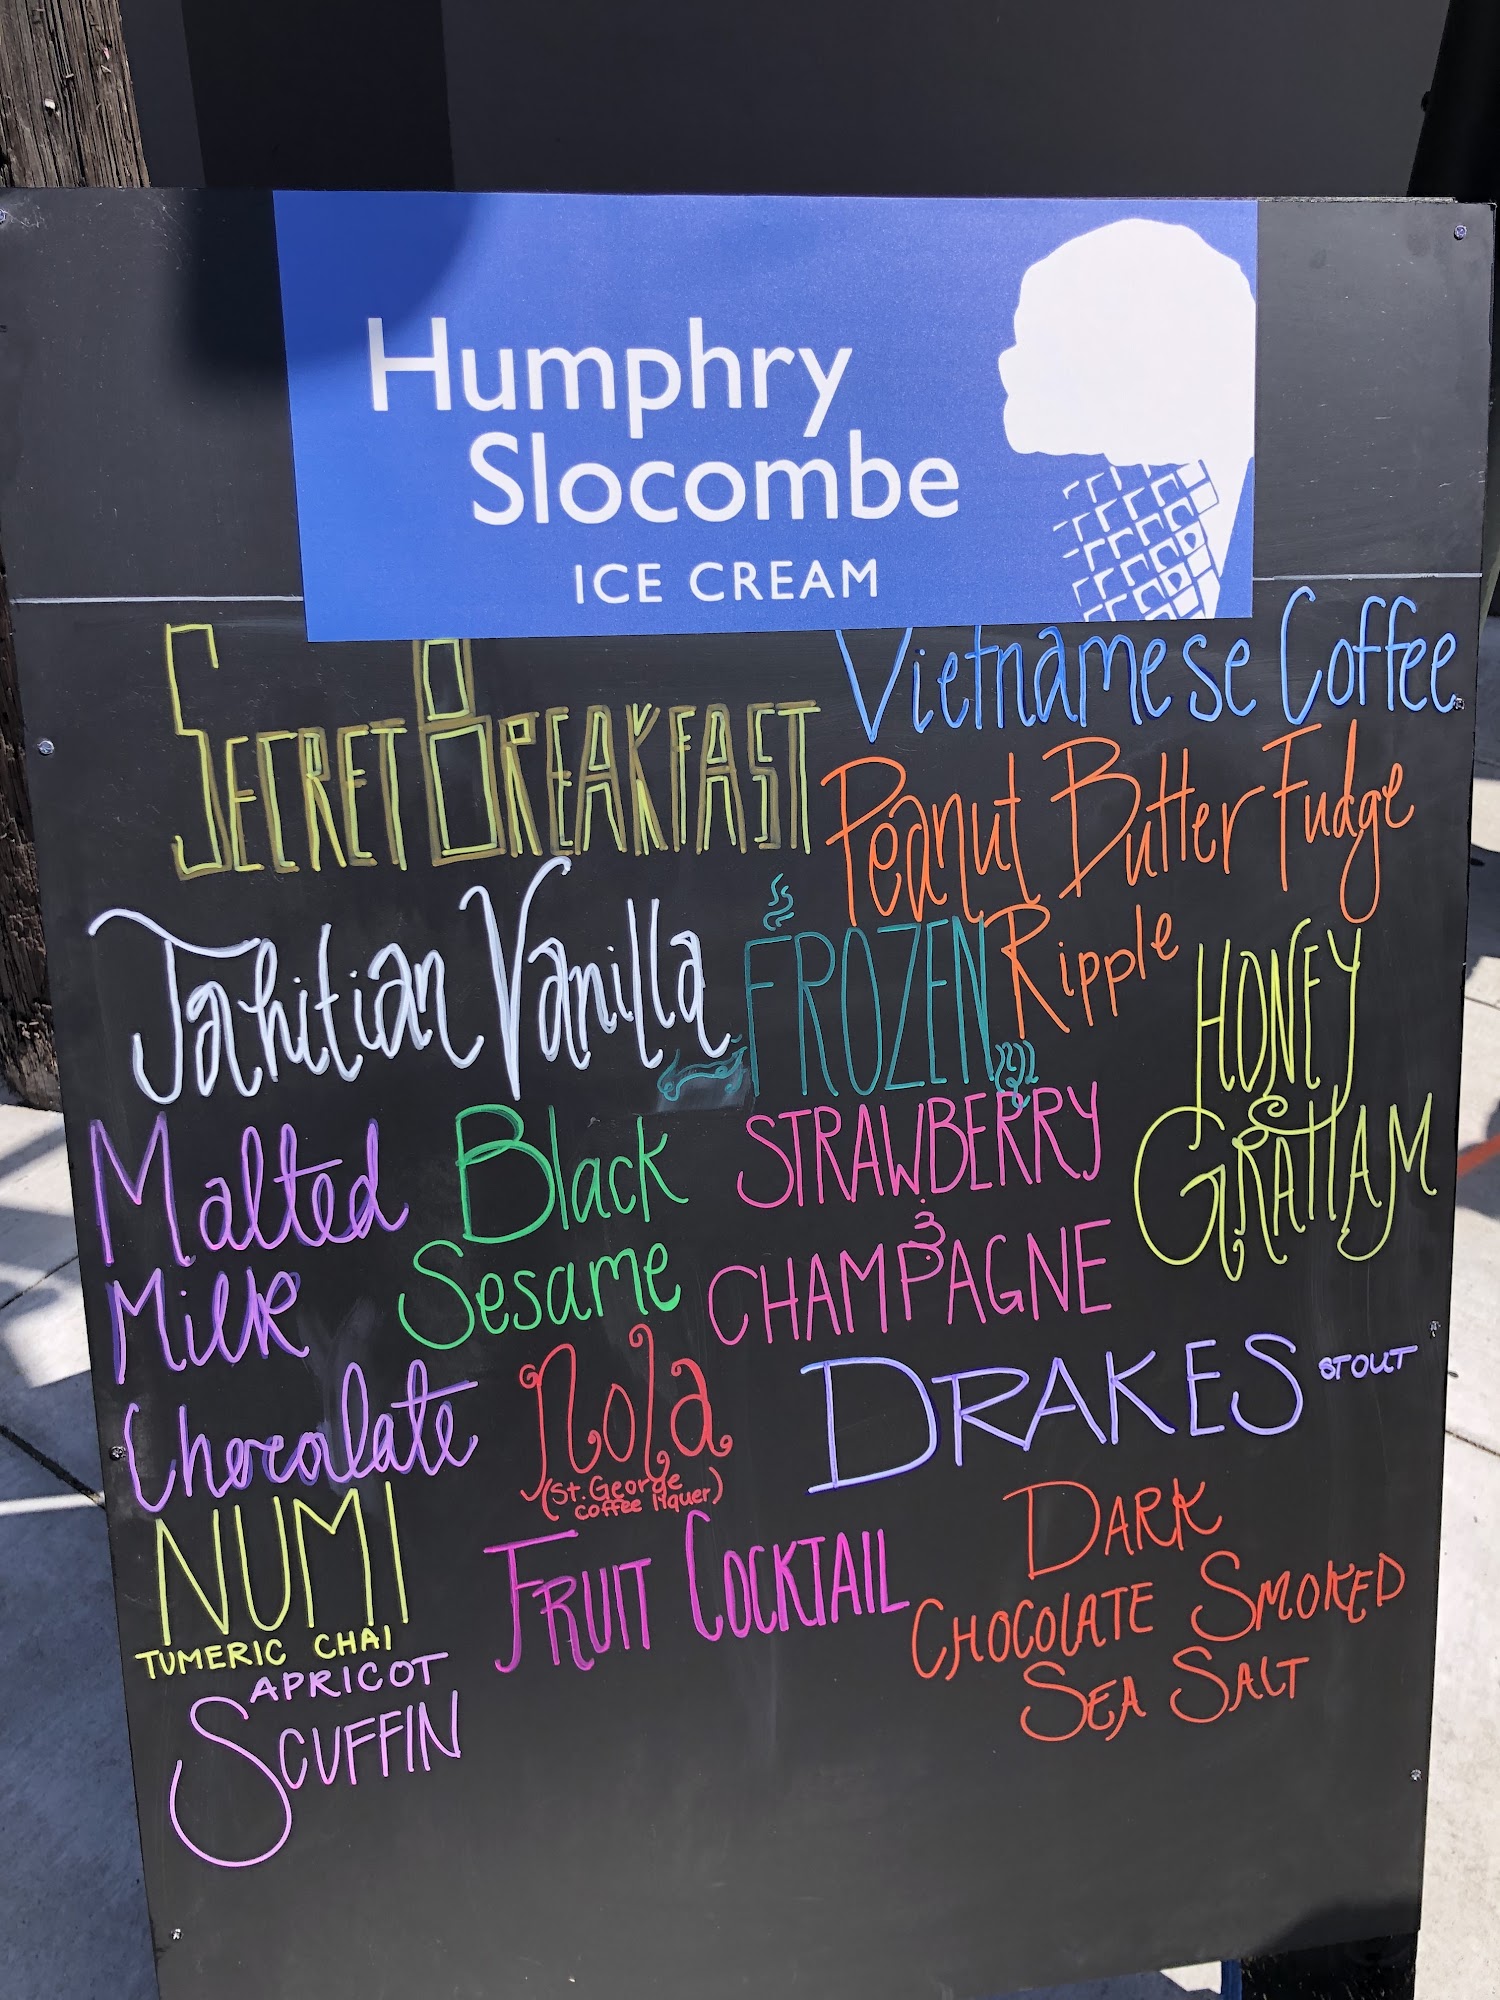 Humphry
Slocombe
ICE CREAM
SECRET BREAKFAST
Vietnamese Coffee
Peanut Butter Fudge
Ripple
Tahitian Vanilla
FROZEN
HONEY
GRAHAM
Malted
Milk
Chocolate
Black
Sesame
STRAWBERRY
&
CHAMPAGNE
Nola
(St. George
coffee liquer)
DRAKES STOUT
NUMI
TUMERIC CHAI
FRUIT COCKTAIL
DARK
CHOCOLATE SMOKED
SEA SALT
APRICOT
SCUFFIN